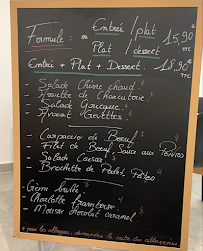 Formule : ou Entrée / plat 15,90€
Plat / dessert TTC
Entrée + Plat + Dessert : 18,90€
TTC
- Salade Chèvre chaud
- Assiette de Charcuterie
- Salade Grecque
- Avocat Crevettes
- Carpaccio de Boeuf
- Filet de Boeuf Sauce aux Poivres
- Salade Caesar
- Brochette de Poulet
- Crème brulée
- Charlotte framboise
- Mousse chocolat caramel
* pour les allergies, demandez la carte des allergènes